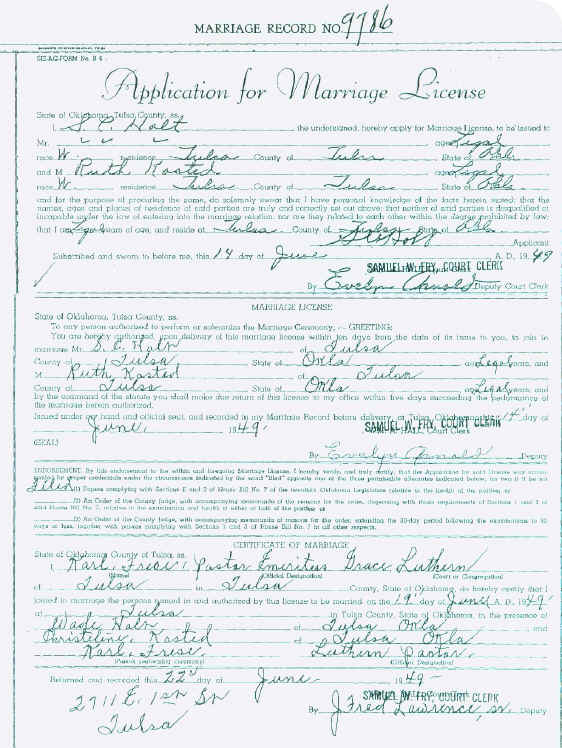 MARRIAGE RECORD NO. 9786
Application for Marriage License
State of Oklahoma, Tulsa County, ss.
I, the undersigned, hereby apply for Marriage License, to be issued to
Mr. age Legal
race W. residence Tulsa County of Tulsa State of Okla
and M Ruth Kasted age Legal
race W. residence Tulsa County of Tulsa State of Okla
and for the purpose of procuring the same, do solemnly swear that I have personal knowledge of the facts herein stated; that the
names, ages and places of residence of said parties are truly and correctly set out above; that neither of said parties is disqualified or
incapable under the law of entering into the marriage relation, nor are they related to each other within the degree prohibited by law;
that I am Legal years of age, and reside at Tulsa County of Tulsa State of Okla
Applicant
Subscribed and sworn to before me, this 14 day of June A. D., 1949
SAMUEL W. FRY, COURT CLERK
By Evelyn Arnold Deputy Court Clerk
MARRIAGE LICENSE
State of Oklahoma, Tulsa County, ss.
To any person authorized to perform or solemnize the Marriage Ceremony, — GREETING:
You are hereby authorized, upon delivery of this marriage license within ten days from the date of its issue to you, to join in
marriage Mr. S. C. Hahn of Tulsa
County of Tulsa State of Okla aged Legal years, and
M Ruth Kasted of Tulsa
County of Tulsa State of Okla aged Legal years, and
by the command of the statute you shall make due return of this license to my office within five days succeeding the performance of
the marriage herein authorized.
Issued under my hand and official seal, and recorded in my Marriage Record before delivery, at Tulsa, Oklahoma, this 14 day of
June, 1949
SAMUEL W. FRY, COURT CLERK
Court Clerk
(SEAL)
By Evelyn Arnold Deputy
ENDORSEMENT: By this endorsement to the within and foregoing Marriage License, I hereby certify, and truly certify, that the Application for said license was accom-
Filed (1) Papers complying with Sections 2 and 3 of House Bill No. 7 of the Oklahoma Legislature relative to the health of the parties; or
(2) An Order of the County Judge, with accompanying memoranda of reasons for the order, dispensing with those requirements of Sections 1 and 2 of
said House Bill No. 7, relative to the examination and health of either or both of the parties; or
(3) An Order of the County Judge, with accompanying memoranda of reasons for the order, extending the 30-day period following the examination to 90
days or less, together with papers complying with Sections 2 and 3 of House Bill No. 7 in all other respects.
CERTIFICATE OF MARRIAGE
State of Oklahoma, County of Tulsa, ss.
I, Karl Friese, Pastor Emeritus Grace Luthern
(Name) (Official Designation) (Court or Congregation)
of Tulsa in Tulsa County, State of Oklahoma, do hereby certify that I
joined in marriage the persons named in and authorized by this license to be married, on the 19 day of June A. D. 1949
at Tulsa in Tulsa County, State of Oklahoma, in the presence of
Wade Hahn of Tulsa Okla and
Christeline Kasted of Tulsa Okla
Karl Friese Luthern Pastor
(Person performing ceremony) (Official Designation)
Returned and recorded this 22 day of June 1949
2711 E. 1st St
Tulsa
SAMUEL W. FRY, COURT CLERK
By J Fred Lawrence, sr. Deputy